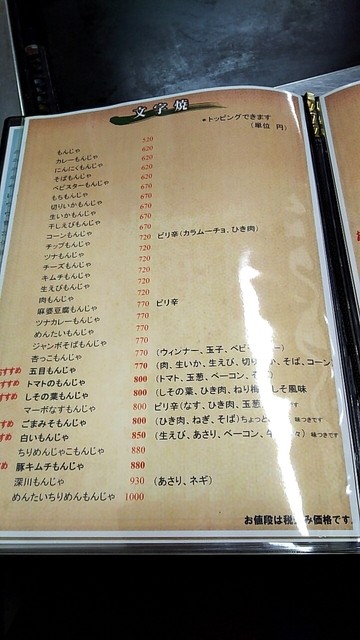 文字焼
*トッピングできます
(単位 円)
もんじゃ 520
カレーもんじゃ 620
にんにくもんじゃ 620
そばもんじゃ 620
ベビスターもんじゃ 620
もちもんじゃ 670
切りいかもんじゃ 670
生いかもんじゃ 670
干しえびもんじゃ 670
コーンもんじゃ 670
チップもんじゃ 720 ピリ辛(カラムーチョ、ひき肉)
ツナもんじゃ 720
チーズもんじゃ 720
キムチもんじゃ 720
生えびもんじゃ 720
肉もんじゃ 720
麻婆豆腐もんじゃ 770 ピリ辛
ツナカレーもんじゃ 770
めんたいもんじゃ 770
ジャンボそばもんじゃ 770
杏っこもんじゃ 770 (ウィンナー、玉子、ベビー
すすめ 五目もんじゃ 770 (肉、生いか、生えび、切り か、そば、コーン
すすめ トマトのもんじゃ 800 (トマト、玉葱、ベーコン、
すすめ しその葉もんじゃ 800 (しその葉、ひき肉、ねり梅 しそ風味
マーボなすもんじゃ 800 ピリ辛(なす、ひき肉、玉葱、
すすめ ごまみそもんじゃ 800 (ひき肉、ねぎ、そば)ちょっと 味つきです
すすめ 白いもんじゃ 850 (生えび、あさり、ベーコン、 味つきです
ちりめんじゃこもんじゃ 880
すめ 豚キムチもんじゃ 880
深川もんじゃ 930 (あさり、ネギ)
めんたいちりめんもんじゃ 1000
お値段は税込み価格です